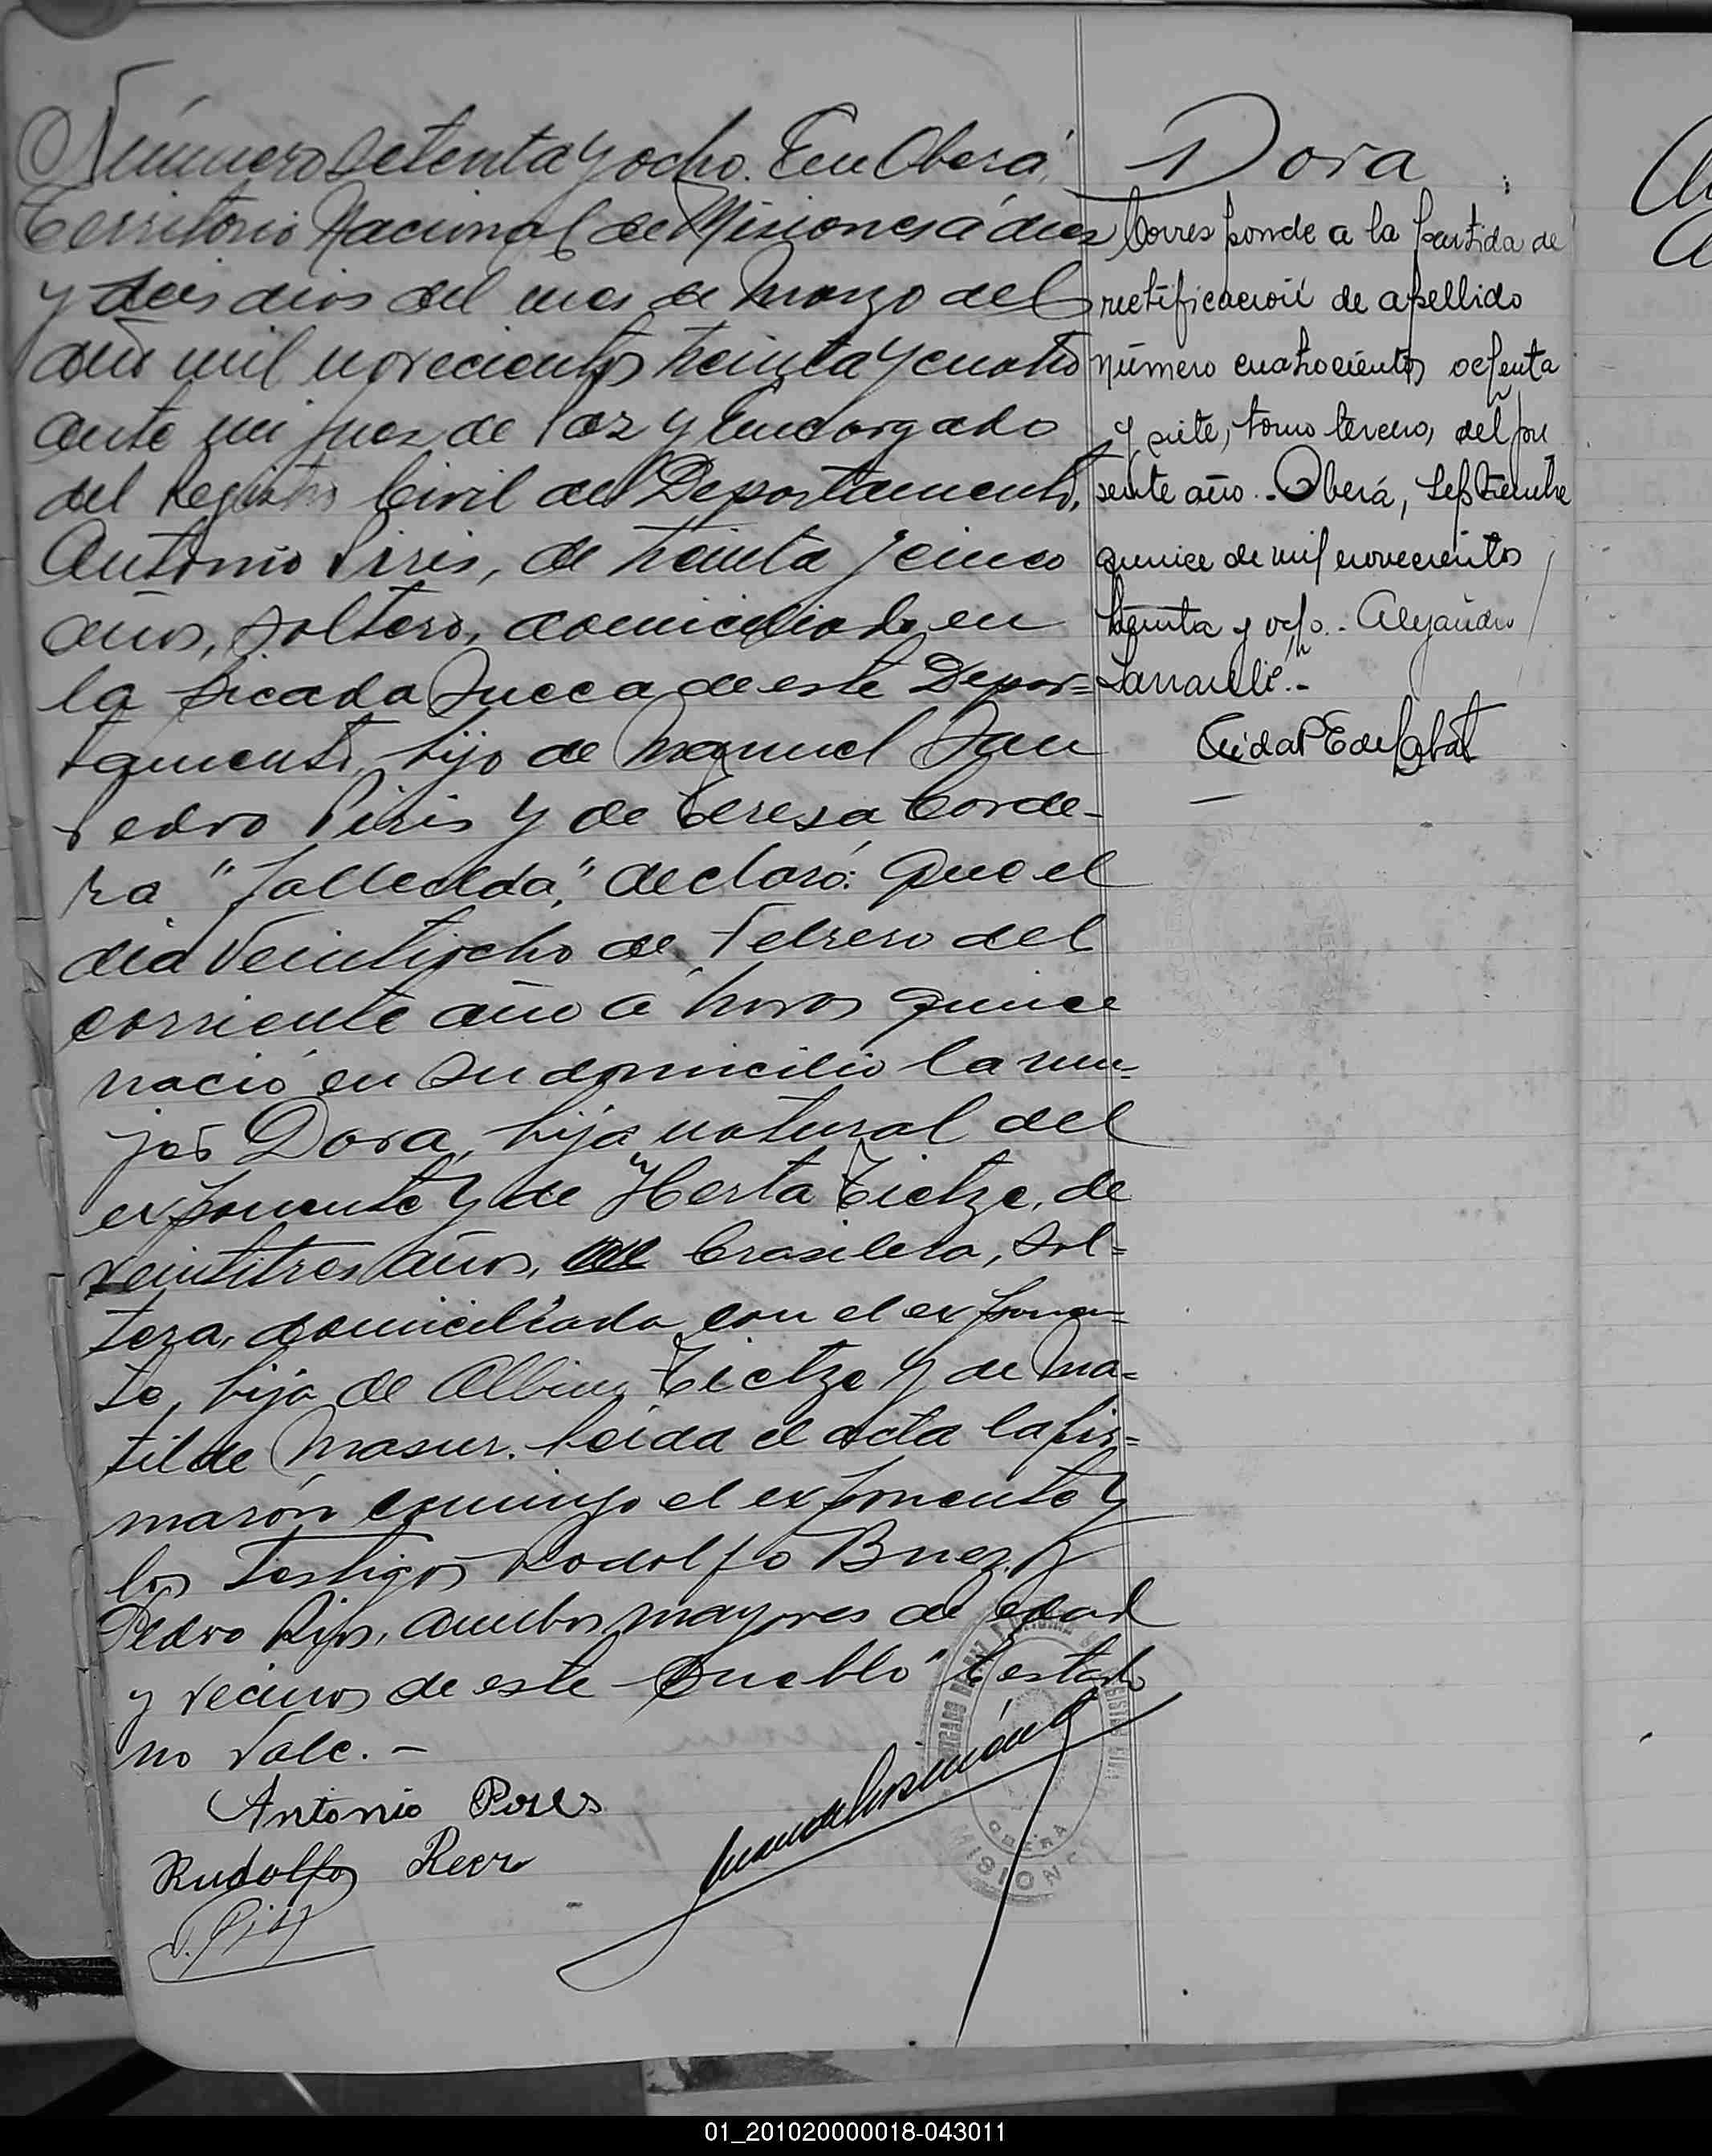 Número Setenta y ocho. En Oberá,
Territorio Nacional de Misiones á dies
y seis dias del mes de Marzo del
año mil novecientos treinta y cuatro
ante mi Juez de Paz y Encargado
del Registro Civil del Departamento,
Antonio Piris, de treinta y cinco
años, soltero, domiciliado en
la picada Sueca de este Depar=
tamento, hijo de Manuel San
Pedro Piris y de Teresa Corde-
ra "fallecida," declaró: Que el
dia Veintiocho de Febrero del
corriente año a horas quince
nació en su domicilio la mu-
jer Dora, hija natural del
exponente y de Herta Tietze, de
veintitres años, brasilera, sol=
tera, domiciliada con el exponen=
te, hija de Albino Tietze y de Ma=
tilde Masur. Leida el acta la fir=
marón conmigo el exponente y
los Testigos Rodolfo
Pedro Rios, ambos mayores de edad
y vecinos de este Pueblo" Testado
no vale. -
Antonio Pires
Rudolfo
Dora
Corresponde a la partida de
rectificación de apellido
número cuatrocientos ochenta
y siete, tomo tercero, del pre
sente año.- Oberá, Septiembre
quince de mil novecientos
treinta y ocho.- Alejandro
OBERA
MISIONES
01_201020000018-043011